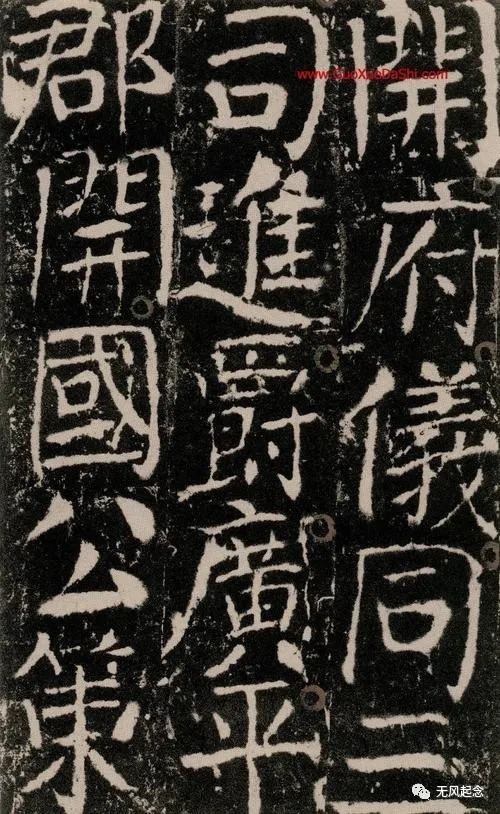 開府儀同三
司進爵廣平
郡開國公策
www.GuoXueDaShi.com
无风起念